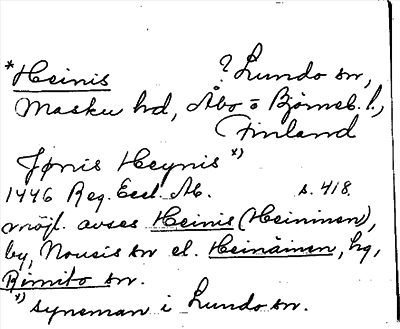 *Heinis ? Lundo sn,
Masku hd, Åbo o Björneb. l.,
Finland
Jønis Heynis *)
1446 Reg. Eccl. Ab. s. 418.
möjl. avses Heinis (Heininen),
by, Nousis sn el. Heinäinen, hg,
Rimito sn.
*) syneman i Lundo sn.